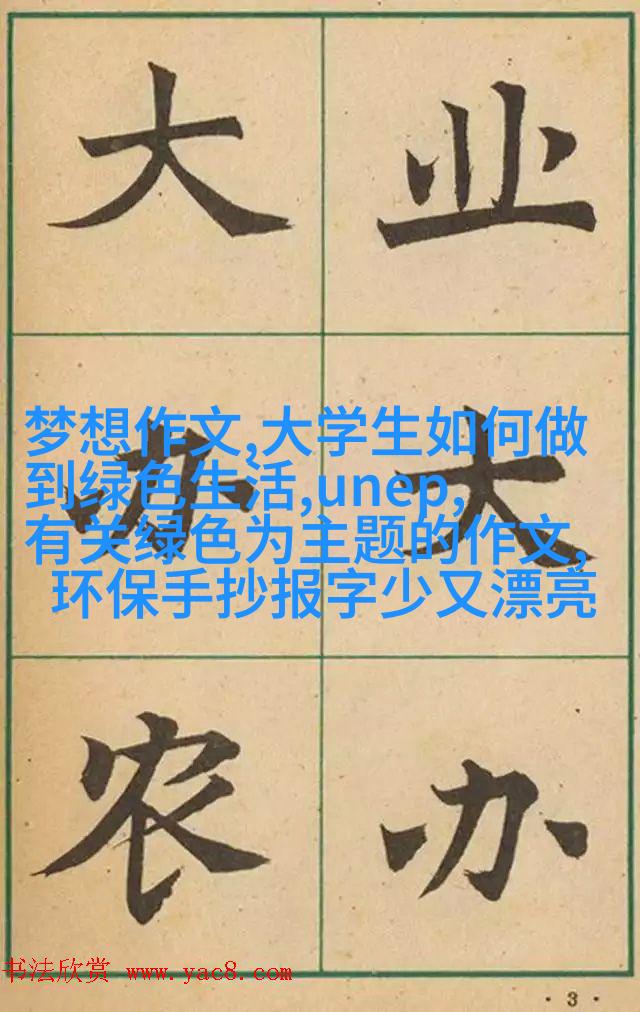 大办农
业大办
梦想作文,大学生如何做
到绿色生活,unep,
有关绿色为主题的作文,
环保手抄报字少又漂亮
书法欣赏 www.yac8.com
·3·